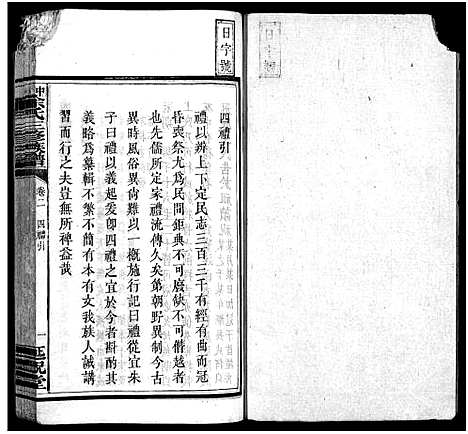 日字號
四禮引
禮以辨上下定民志三百三千有經有曲而冠
昏喪祭尤爲民間鉅典不可廢缺不可僭越者
也先儒所定家禮流傳久矣第朝野異制今古
異時風俗異尚難以一概施行記曰禮從宜朱
子曰禮以義起爰卽四禮之宜於今者斟酌其
義略爲纂輯不繁不簡有本有文我族人誠講
習而行之夫豈無所裨益哉
卷二 四禮引 一